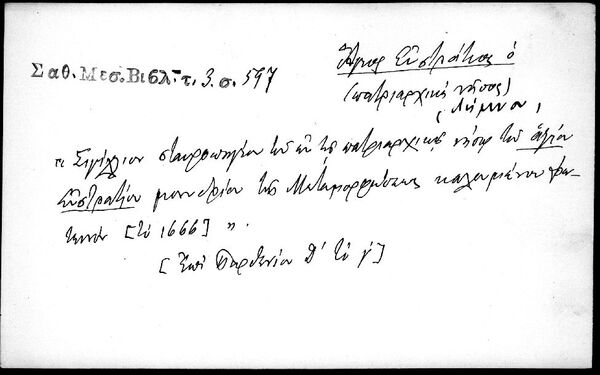 Ἅγιος Εὐστράτιος ὁ
Σαθ. Μεσ. Βιβλ. τ. 3. σ. 597
(πατριαρχικὴ νῆσος)
(Λήμνου,
"Σιγίλλιον σταυροπηγίου τοῦ ἐν τῇ πατριαρχικῇ νήσῳ τοῦ ἁγίου
Εὐστρατίου μονυδρίου τῆς Μεταμορφώσεως καλουμένου
[τῷ 1666]".
[Ἐπὶ Παρθενίου Δ' τὸ γ']